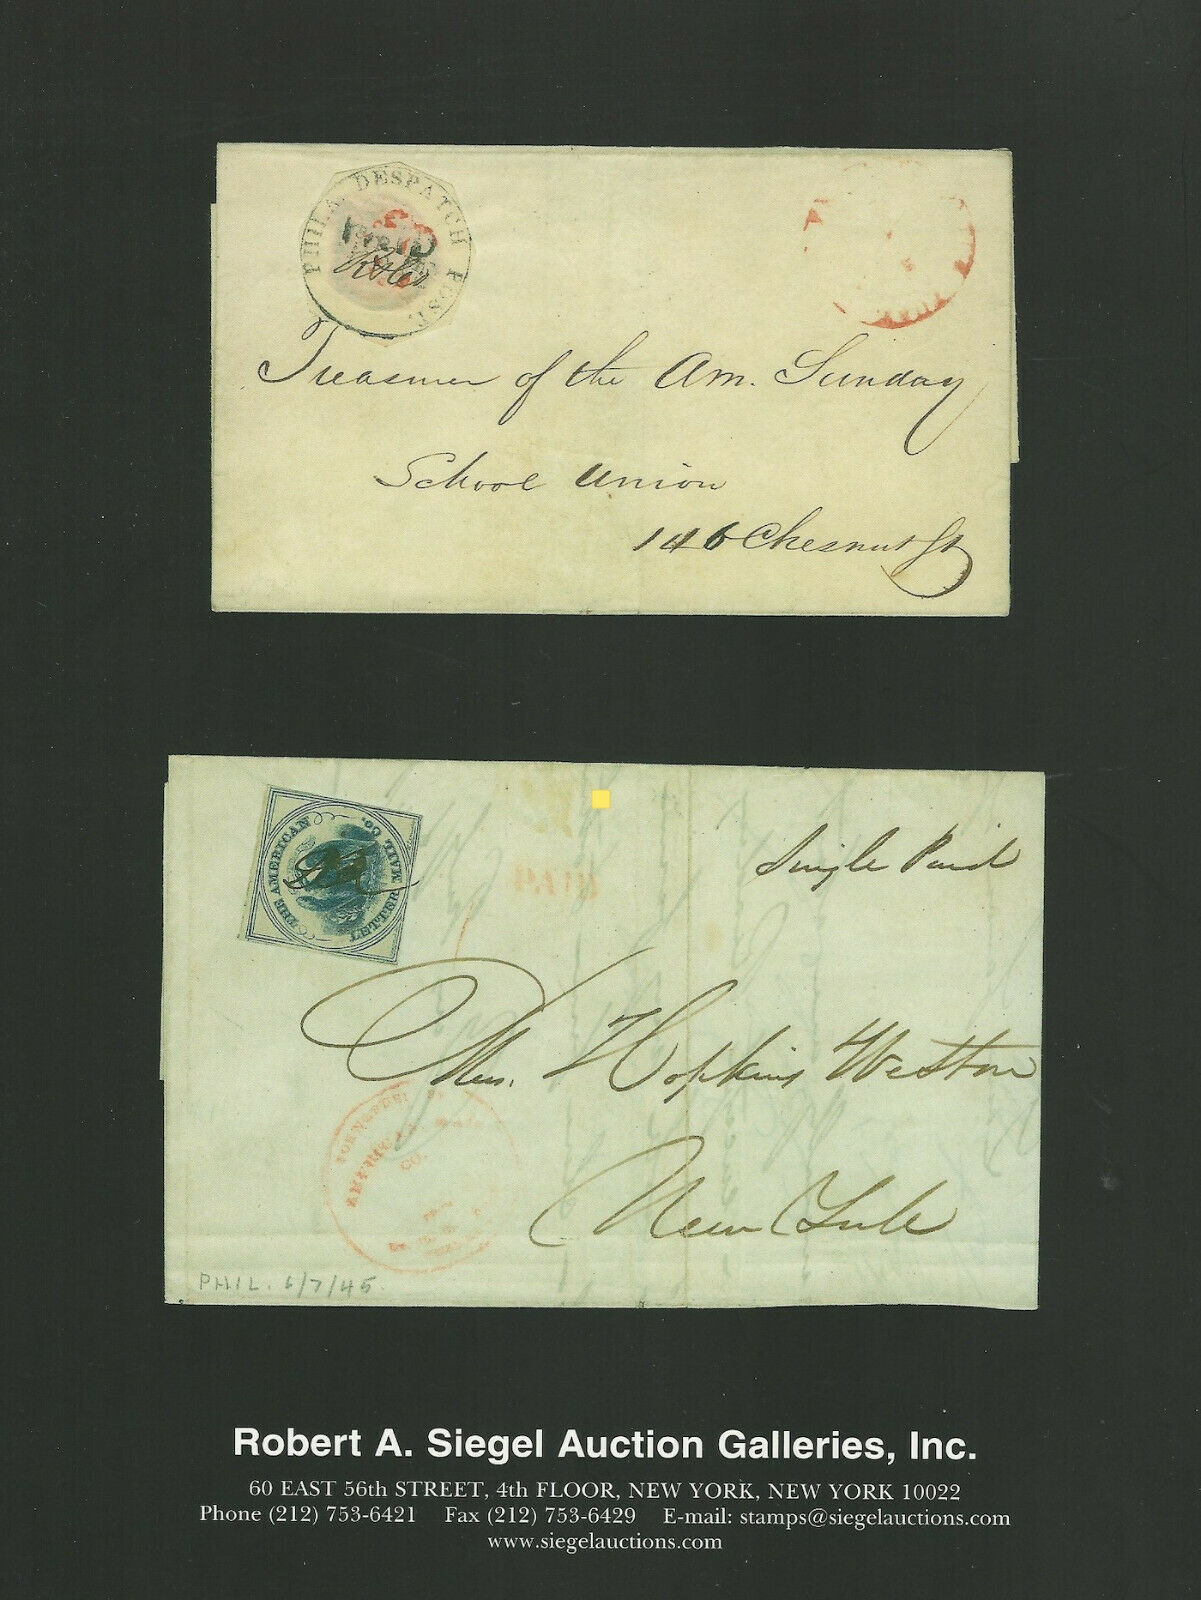 PHILA DESPATCH POST.
PAID
Treasurer of the Am. Sunday
School Union
146 Chesnut St
THE AMERICAN LETTER MAIL CO.
PAID
Single Paid
Mrs. Hopkins Weston
New York
AMERICAN MAIL
CO.
PHIL. 6/7/45.
Robert A. Siegel Auction Galleries, Inc.
60 EAST 56th STREET, 4th FLOOR, NEW YORK, NEW YORK 10022
Phone (212) 753-6421 Fax (212) 753-6429 E-mail: stamps@siegelauctions.com
www.siegelauctions.com